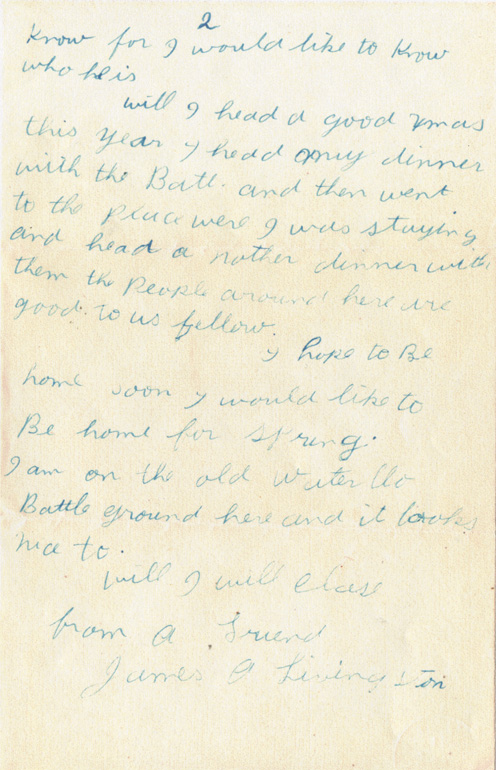 2
Know for I would like to Know
who he is
will I head a good xmas
this year I head my dinner
with the Batl. and then went
to the place were I was staying
and head a nother dinner with
them the People around here are
good to us fellow.
I hope to Be
home soon I would like to
Be home for spring.
I am on the old Waterllo
Battle ground here and it looks
nice to.
will I will close
from a Friend
James A Livingston